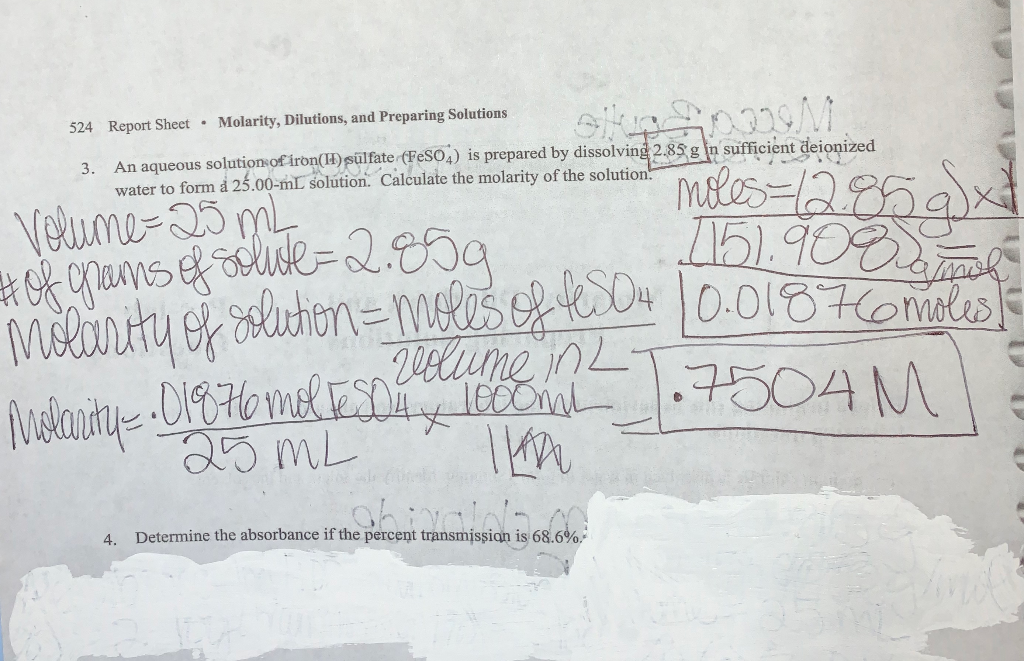 524 Report Sheet • Molarity, Dilutions, and Preparing Solutions
3. An aqueous solution of iron(II) sulfate (FeSO4) is prepared by dissolving 2.85 g in sufficient deionized
water to form a 25.00-mL solution. Calculate the molarity of the solution.
moles=(2.85g)x1
(151.908) g/mol
0.01876moles
Volume=25 mL
# of grams of solute=2.85g
Molarity of solution=moles of feSO4
volume in L
Molarity= .01876 mol FeSO4 x 1000ml = .7504 M
25 mL 1L
4. Determine the absorbance if the percent transmission is 68.6%.